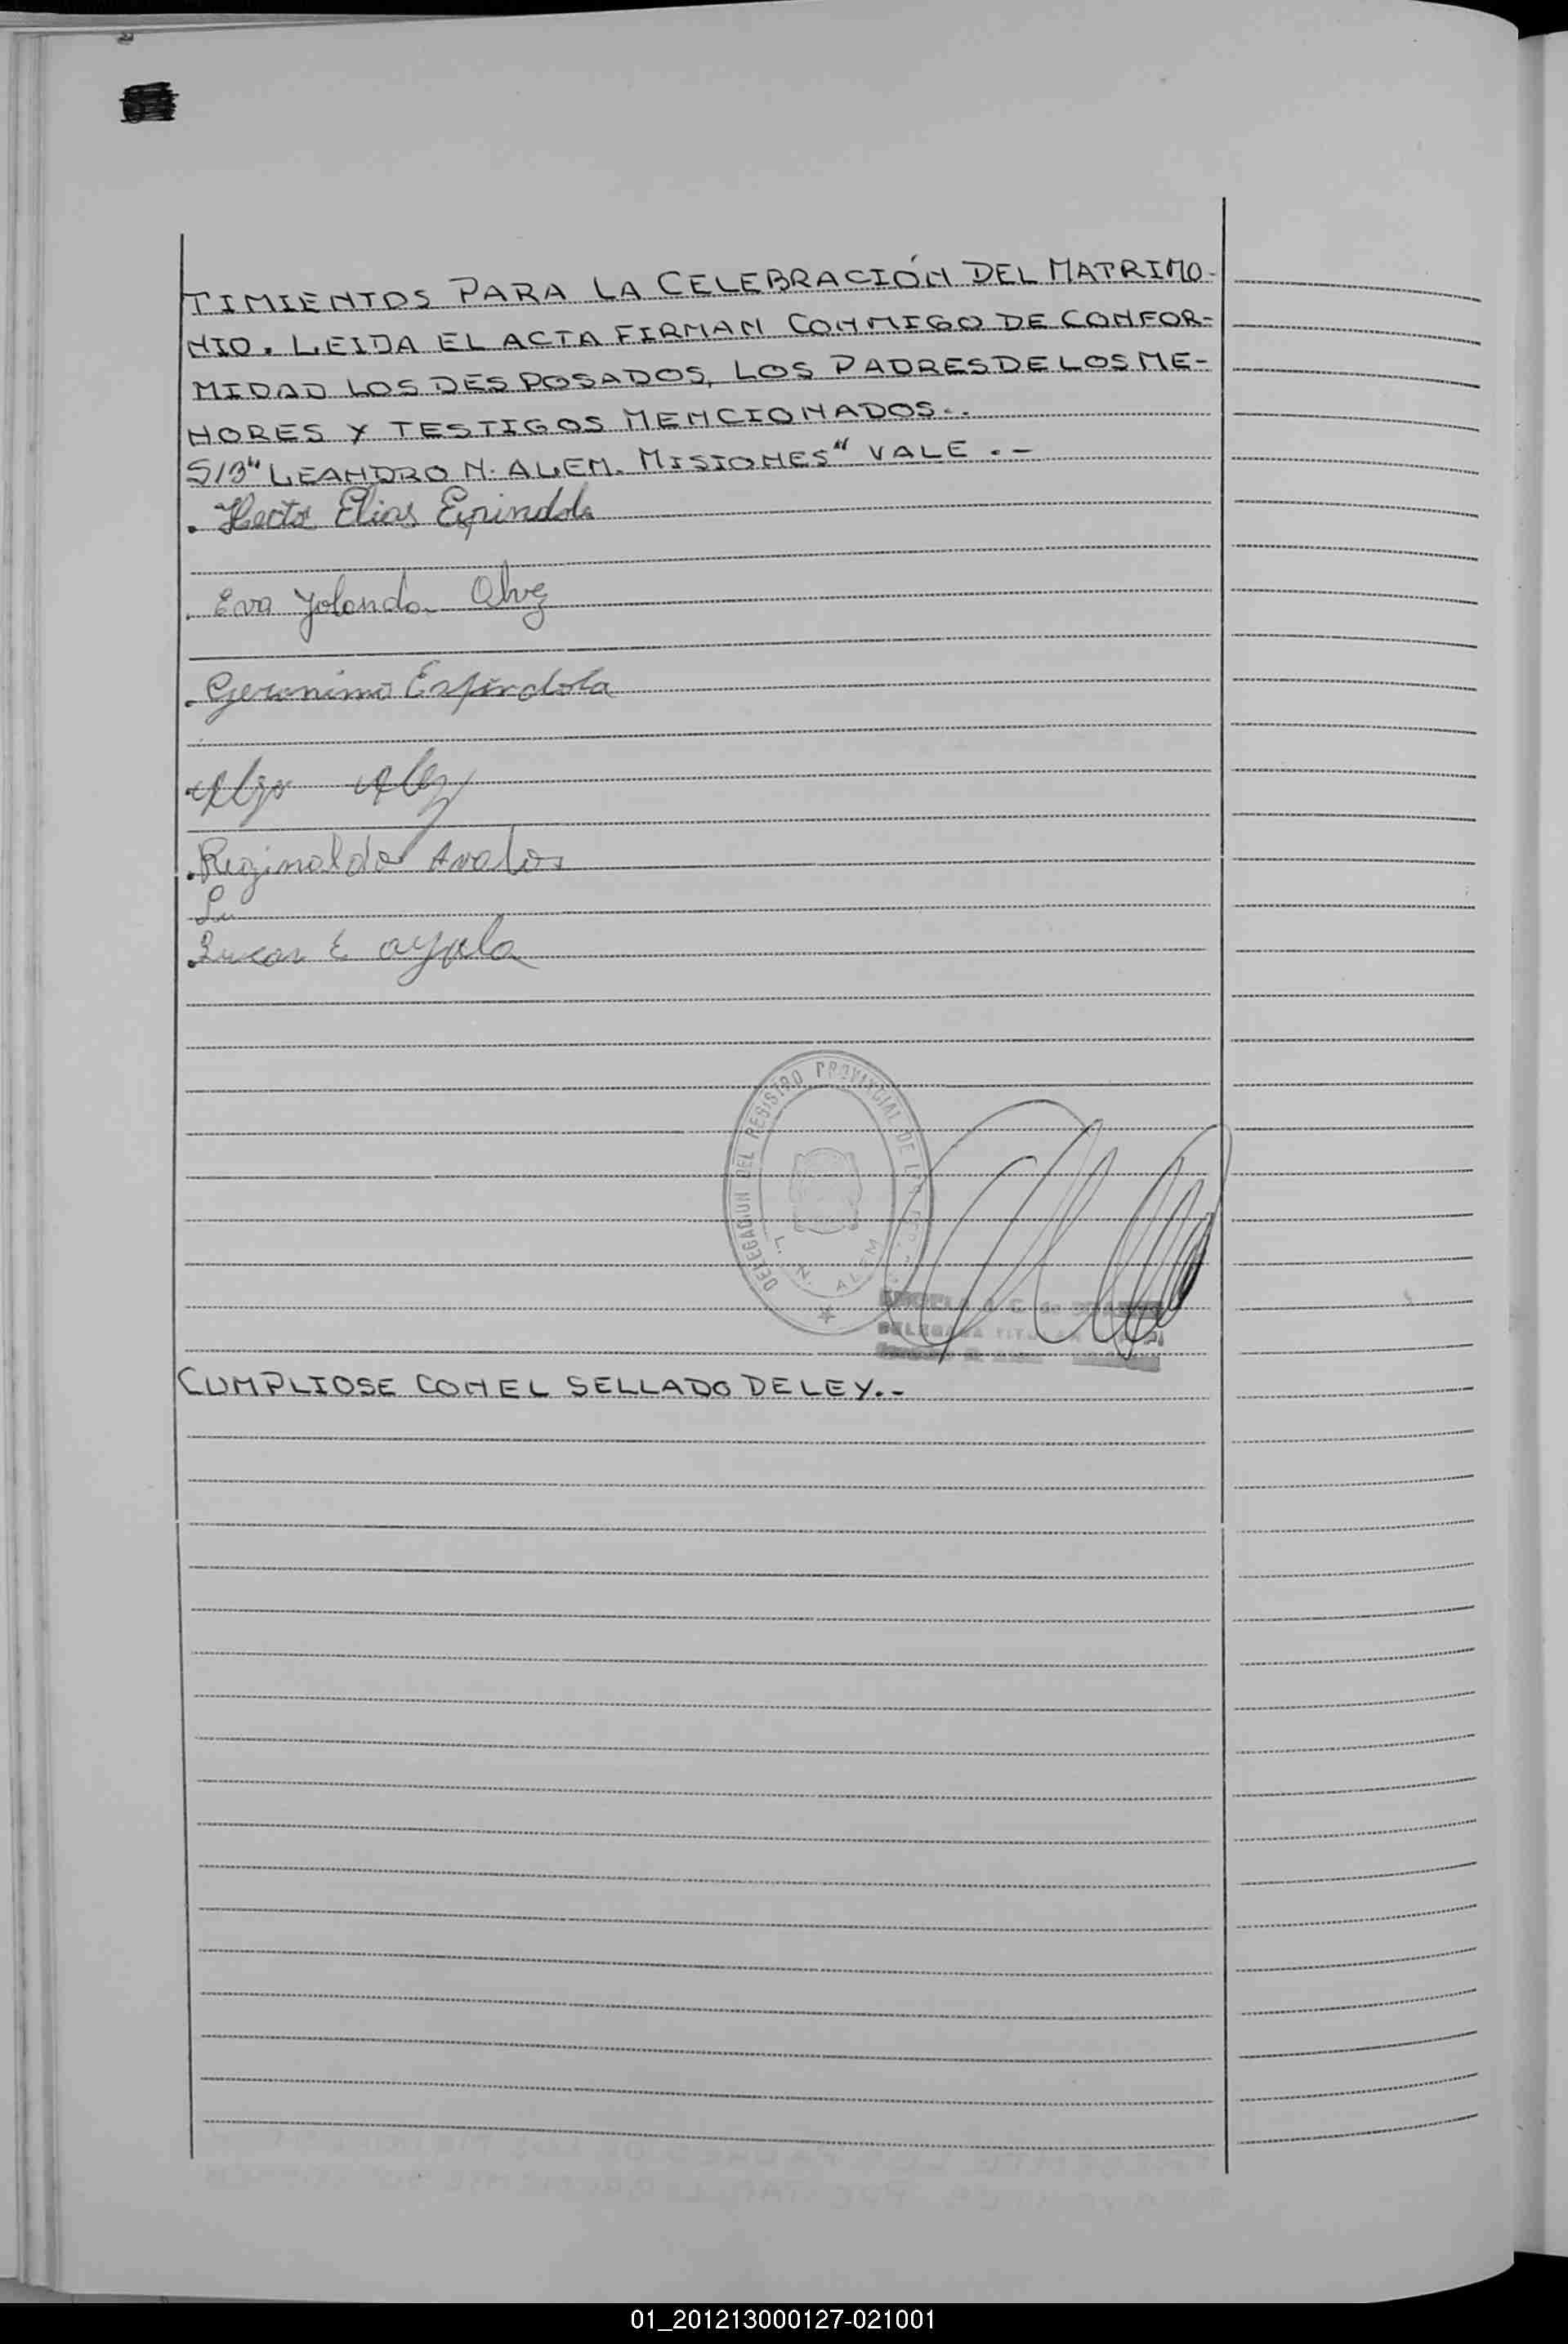 TIMIENTOS PARA LA CELEBRACIÓN DEL MATRIMO-
NIO. LEIDA EL ACTA FIRMAN CONMIGO DE CONFOR-
MIDAD LOS DESPOSADOS, LOS PADRES DE LOS ME-
NORES Y TESTIGOS MENCIONADOS..
S/B "LEANDRO N. ALEM. MISIONES" VALE . -
. Hector Elias Espindola
. Eva Yolanda
. Geronimo Espindola
. Reginaldo Avalos
Lu
. Lucas E ayala
DELEGACION DEL REGISTRO PROVINCIAL DE LAS
L. N. ALEM
DELEGADA TITULAR
CUMPLIOSE CON EL SELLADO DE LEY. -
01_201213000127-021001